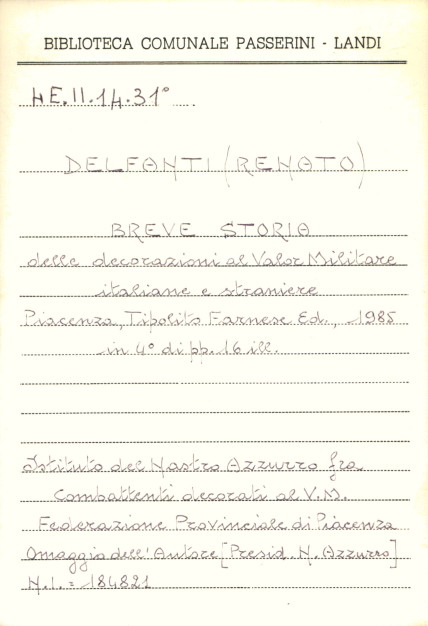 BIBLIOTECA COMUNALE PASSERINI - LANDI
4E.II.14.31°
DELFANTI (RENATO)
BREVE STORIA
delle decorazioni al Valor Militare
italiane e straniere
Piacenza, Tipolito Farnese Ed., 1985
in 4° di pp. 16 ill.
Istituto del Nastro Azzurro fra
Combattenti decorati al V.M.
Federazione Provinciale di Piacenza
Omaggio dell'Autore [Presid. N. Azzurro]
N.I. = 184821